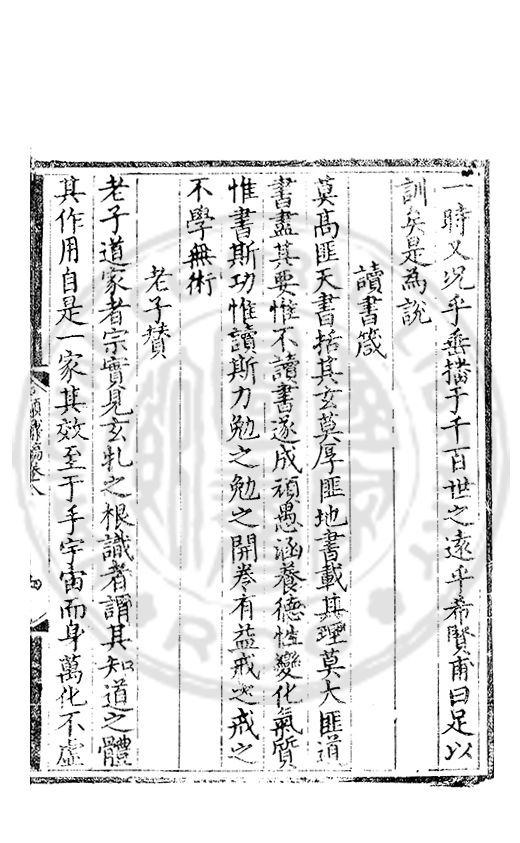 一時又况乎垂播于千百世之遠乎希賢甫曰足以
訓矣是為說
讀書箴
莫髙匪天書括其玄莫厚匪地書載其理莫大匪道
書盡其要惟不讀書遂成頑愚涵養德性變化氣質
惟書斯功惟讀斯力勉之勉之開卷有益戒之戒之
不學無術
老子賛
老子道家者宗實見玄牝之根識者謂其知道之體
其作用自是一家其效至于手宇宙而身萬化不虛